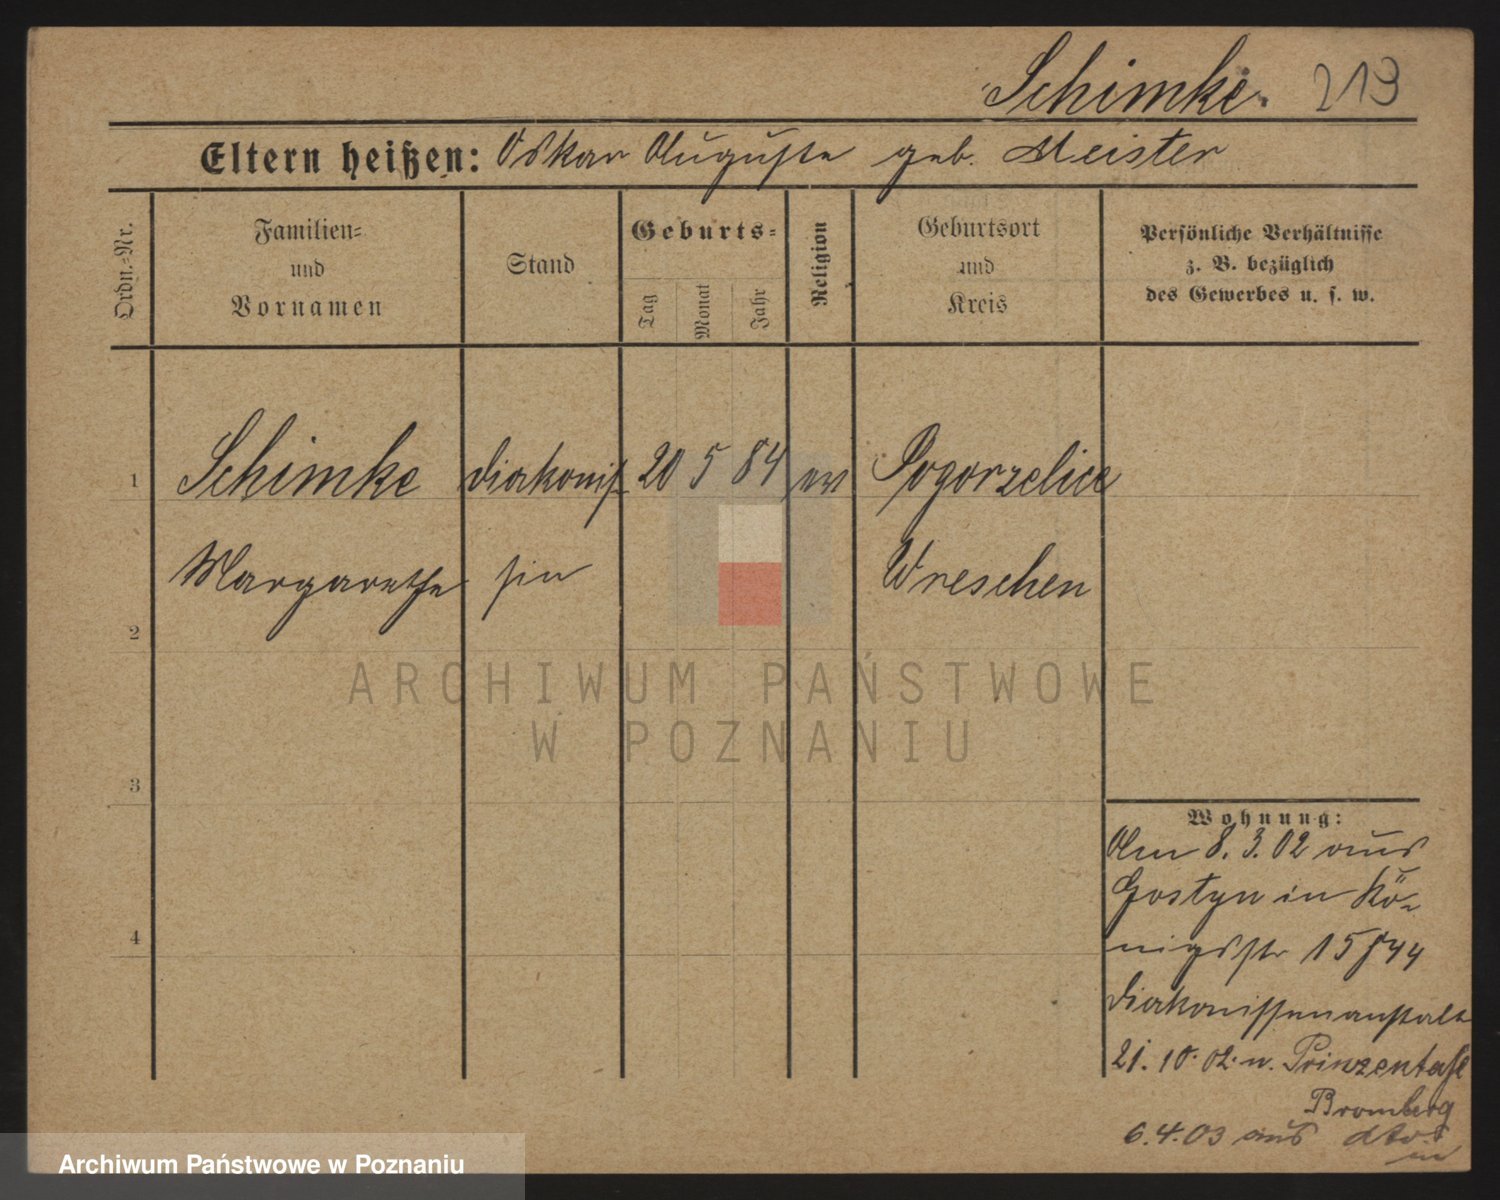 Schimke. 213
Eltern heißen: Oskar Auguste geb. Meister
Ordn.-Nr.
Familien-
und
Vornamen
Stand
Geburts-
Tag
Monat
Jahr
Religion
Geburtsort
und
Kreis
Persönliche Verhältnisse
z. B. bezüglich
des Gewerbes u. s. w.
1 Schimke Diakonis- 20 5 84 ev Pogorzelice
Margarethe sin Wreschen
2
3
4
ARCHIWUM PAŃSTWOWE
W POZNANIU
Wohnung:
Am 8. 3. 02 aus
Gostyn in Kö-
nigsstr 15
Diakonissenanstalt
21. 10. 02. n. Prinzental
Bromberg
6. 4. 03 aus dto.
Archiwum Państwowe w Poznaniu